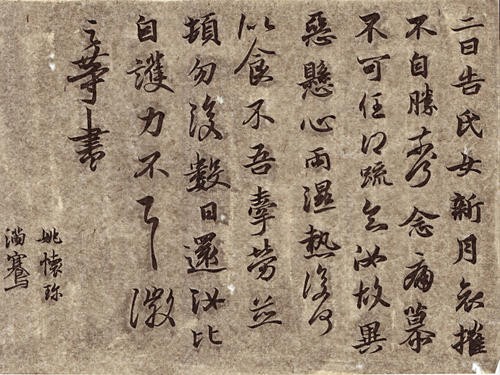 二日告氏女新月哀摧
不自勝奈何念痛慕
不可任得疏知汝故異
惡懸心雨濕熱復何
似食不吾牽勞並
頓勿復數日還汝比
自護力不一一徽
之等書
姚懷珍
滿騫